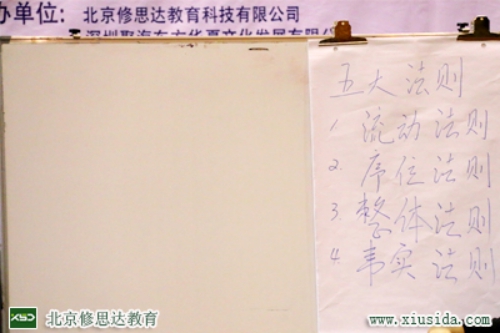 办单位: 北京修思达教育科技有限公司
深圳聚海东方华夏文化发展有限公
五大法则
1 流动法则
2. 序位法则
3. 整体法则
4. 韦实法则
XSD 北京修思达教育
www.xiusida.com